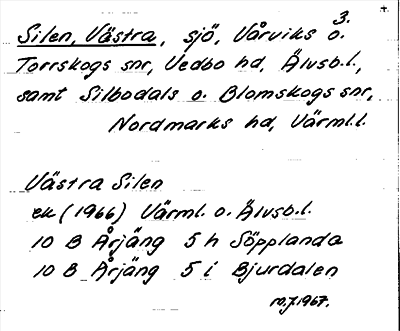 3.
Silen, Västra, sjö, Vårviks o.
Torrskogs snr, Vedbo hd, Älvsb.l.,
samt Silbodals o. Blomskogs snr,
Nordmarks hd, Värml.l.
Västra Silen
ek (1966) Värml. o. Älvsb.l.
10 B Årjäng 5 h Söpplanda
10 B Årjäng 5 i Bjurdalen
m.j. 1967.